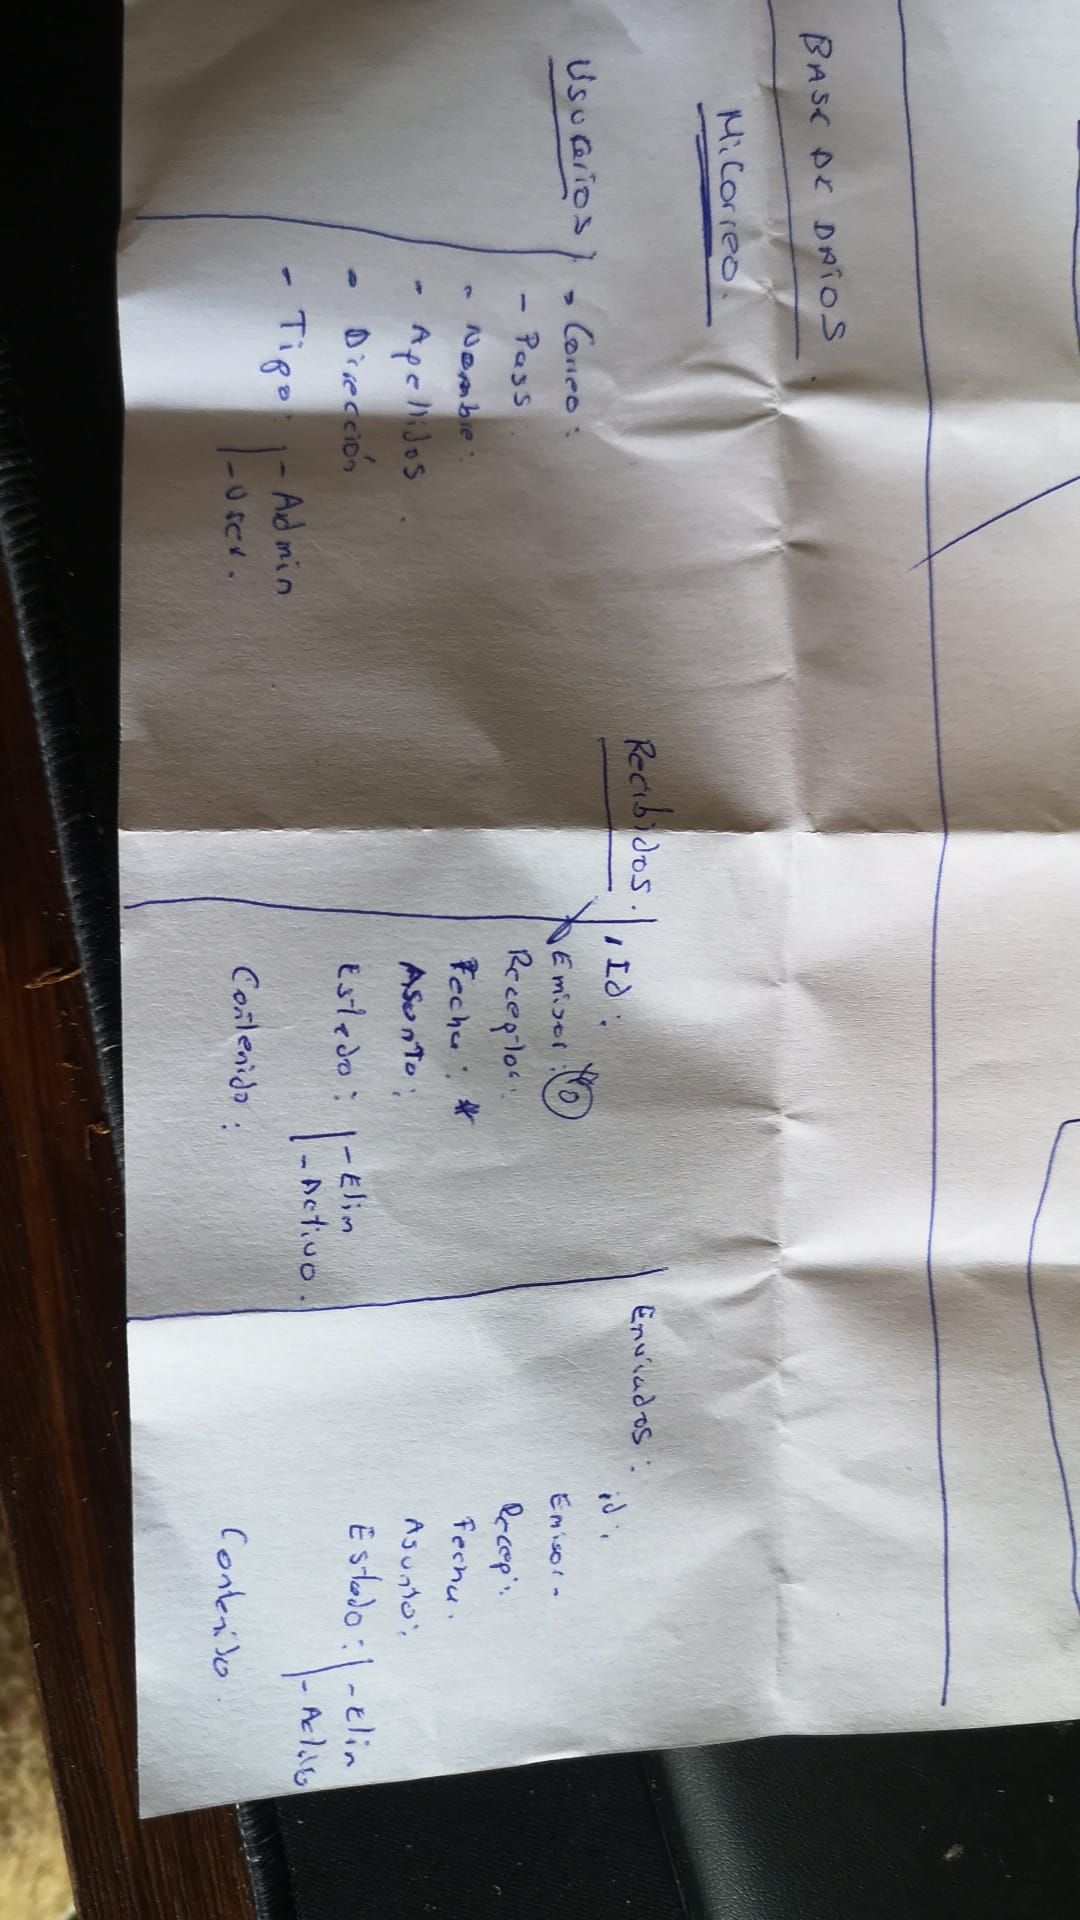 BASE DE DATOS.
MiCorreo.
Usuarios
- Correo:
- Pass
- Nombre:
- Apellidos
- Dirección
- Tipo: - Admin
- User.
Recibidos.
Id:
Emisor:
Receptor:
Fecha: *
Asunto:
Estado: - Elim
- Activo.
Contenido:
Enviados:
id:
Emisor-
Recep:
Fecha.
Asunto:
Estado: - Elim
- Activo
Contenido.